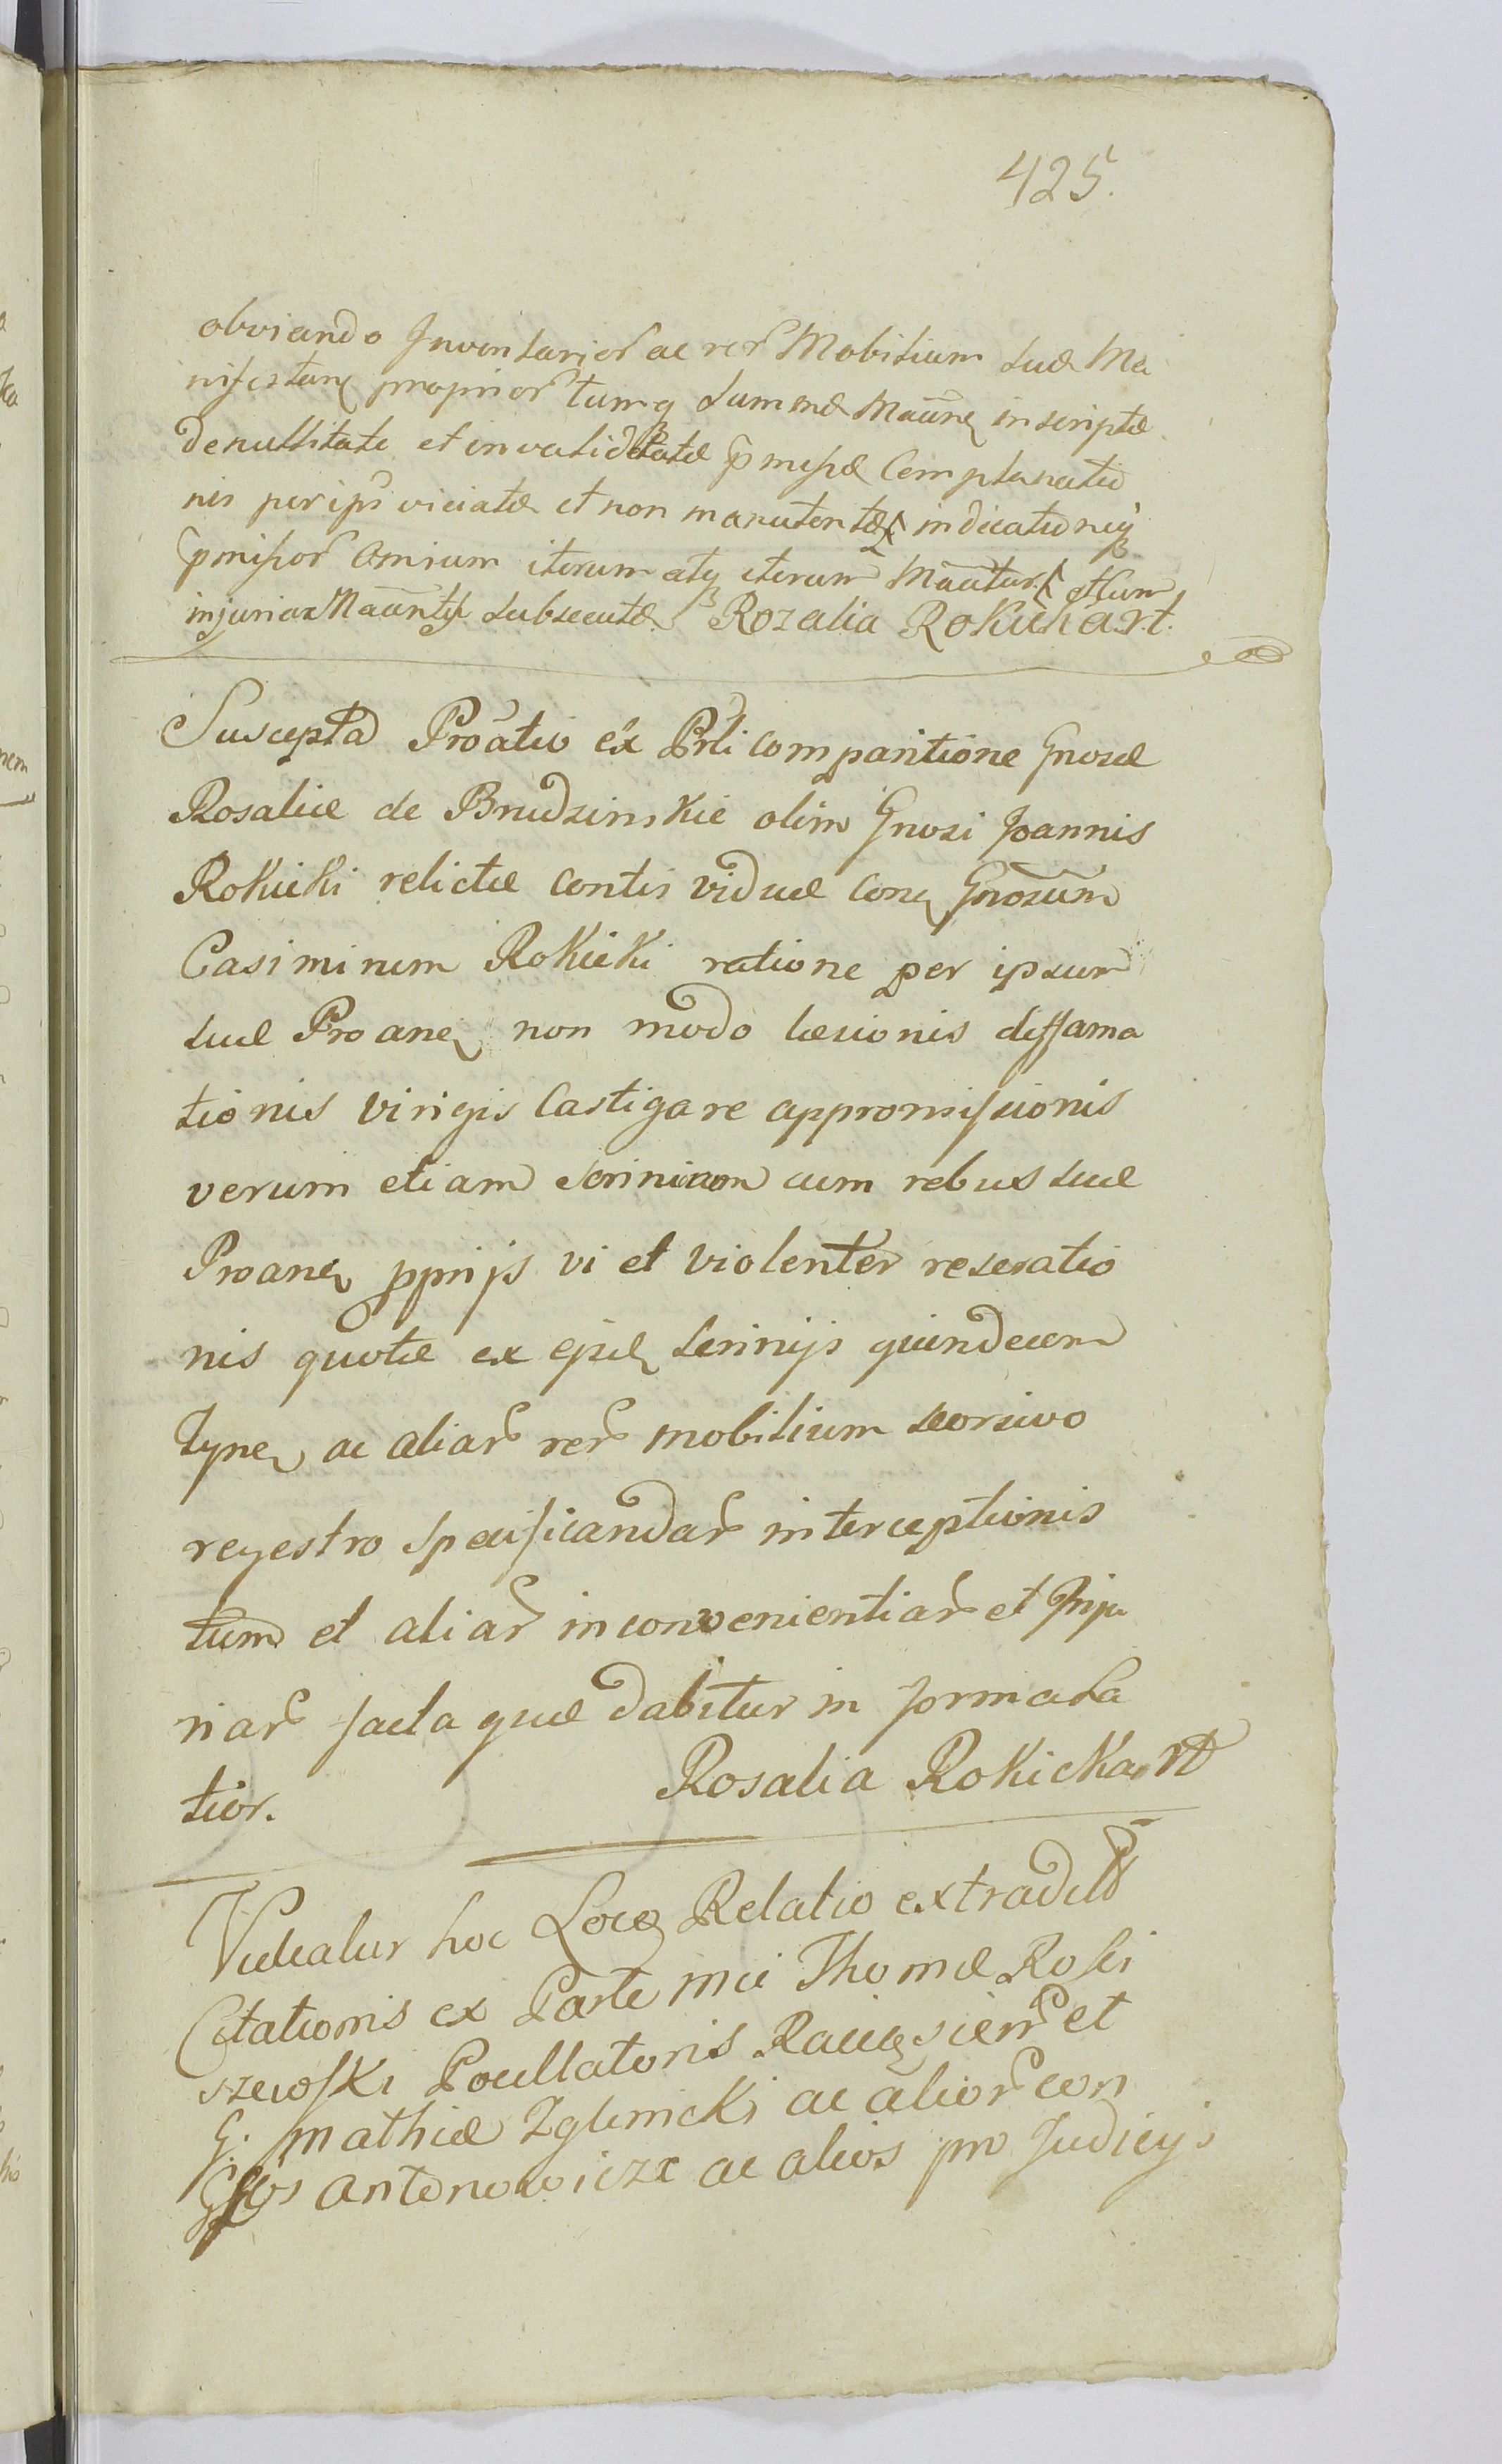 425.
obviando Inventarior ac rer Mobilium suæ Ma
nifestan proprior tumq summæ Maĩne inscriptæ
de nullitate et invaliditate pmissæ Complanatio
nis per ips viciatæ et non manutentæ indicationeq
pmissor omium iterum atq iterum Maãtur
injurias subsecutæ Rozalia Rokicka.r.t.
Suscepta Proãtio ex Prli comparitione Gnosæ
Rosaliæ de Brudzinskie olim Gnosi Joannis
Rokicki relictæ contis viduæ con Gnosum
Casimirum Rokicki ratione per ipsum
suæ Proane non modo læsionis diffama
tionis virigis Castigare appromissionis
verum etiam scrinium cum rebus suæ
Proane pprijs vi et violenter reseratio
nis quotæ ex ejsd scrinijs quindecem
Tyne ac aliar rer mobilium seorsivo
regestro specificandar interceptionis
tum et aliar inconvenientiar et Inju
riar facta quæ dabitur in forma La
tior. Rosalia Rokicka rt
Videatur hoc Loco Relatio extradit
Citationis ex Parte mci Thomæ Rosci
szewski Pocillatoris et
G. Mathiæ Zglinicki ac alior con
Gsos Antonowicze ac alios pro Judicijs